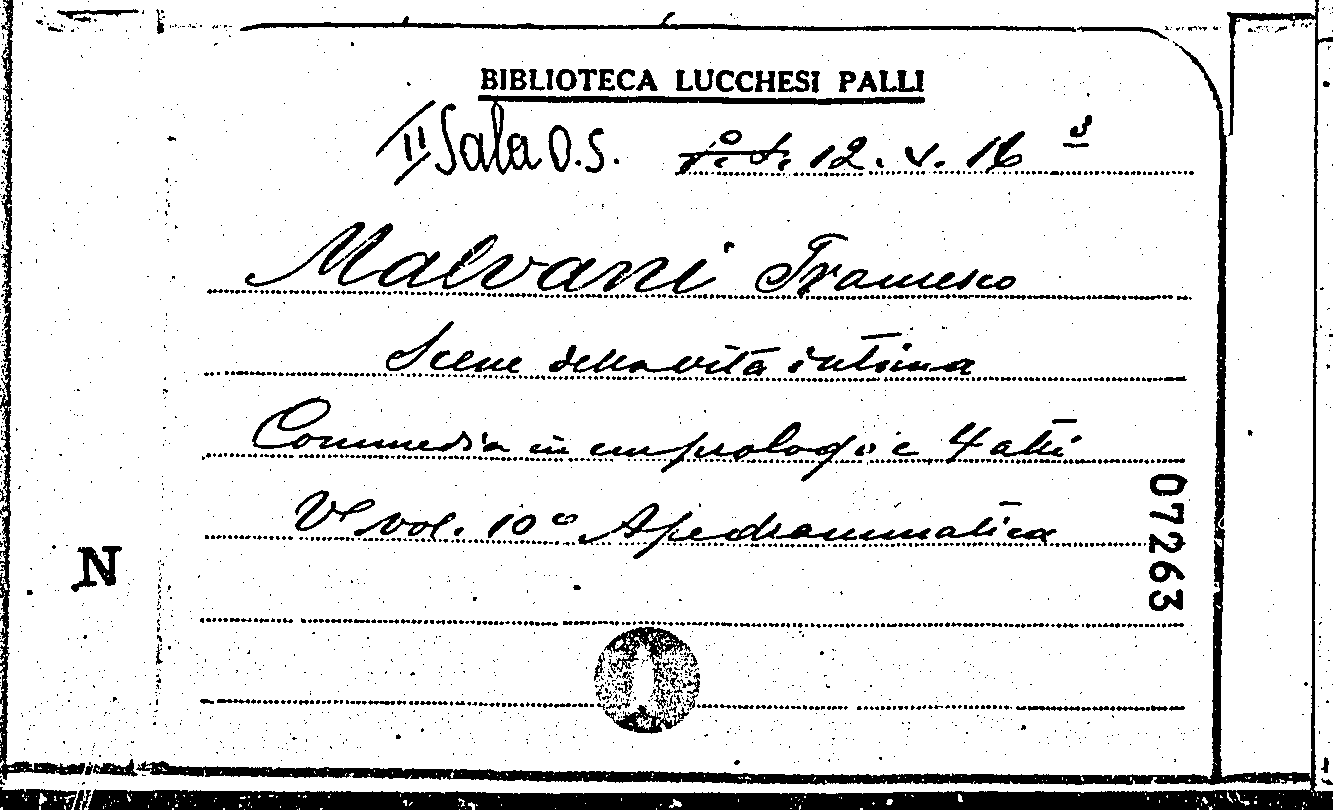 BIBLIOTECA LUCCHESI PALLI
II Sala O.S. 12. V. 16 3
Malvani Francesco
Scene della vita intima
Commedia in un prologo e 4 atti
Vol. 10° Ape drammatica
07263
N